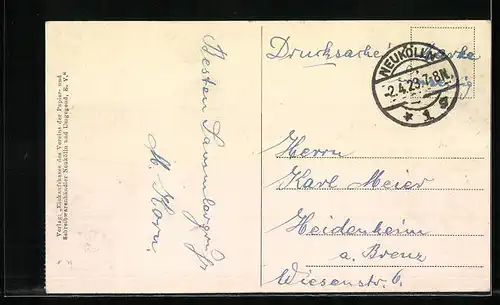 Verlag: „Einkaufskasse des Vereins der Papier- und
Schreibwarenhändler Neukölln und Umgegend, E. V."
Besten Sammlergruß
M. Korn.
Drucksache! Marke
NEUKÖLLN
-2.4.23.7-8N.
* 1 g
Herrn
Karl Meier
Heidenheim
a. Brenz
Wiesenstr. 6.